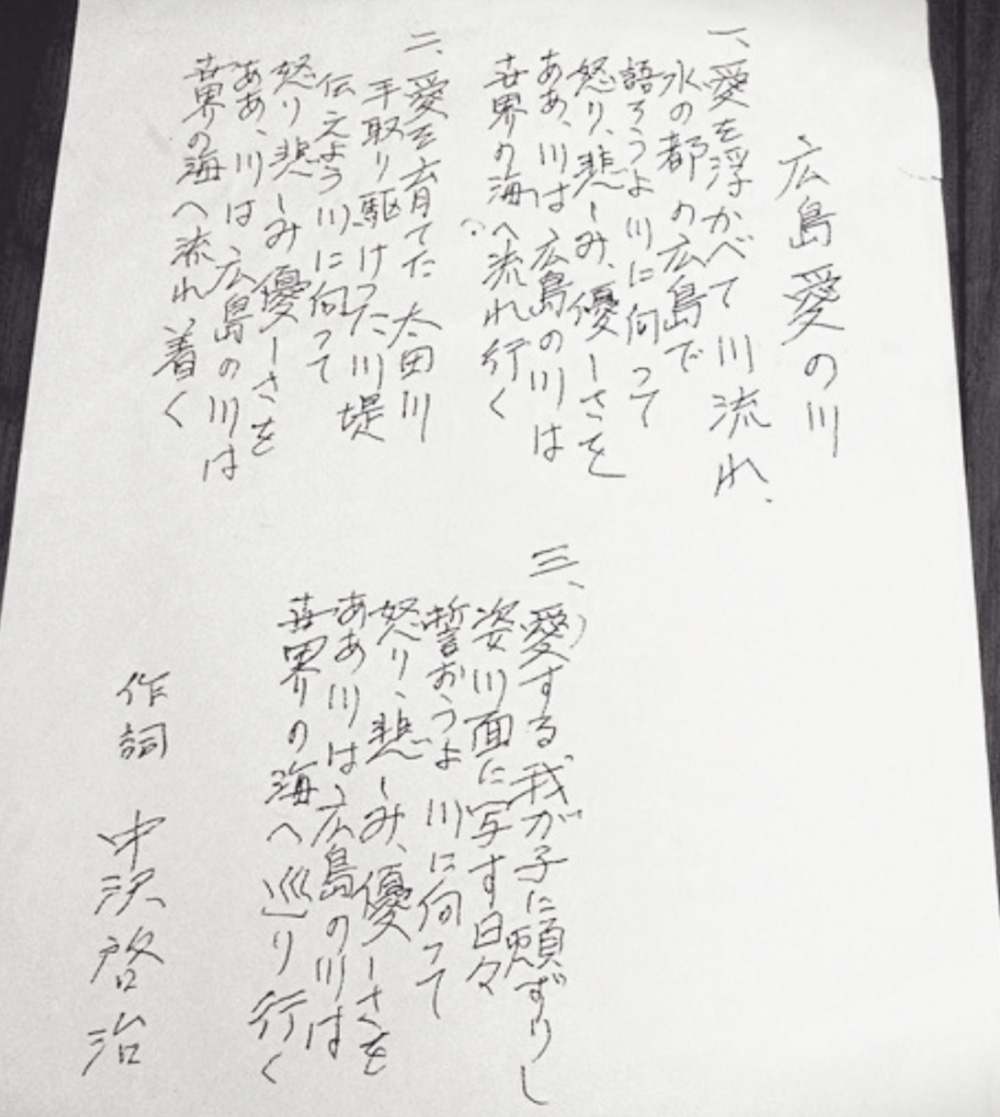 広島 愛の川
一、愛を浮かべて川流れ、
水の都の広島で
語ろうよ川に向って
怒り、悲しみ、優しさを
ああ、川は 広島の川は
世界の海へ流れ行く
二、愛を育てた 太田川
手取り駆けった川堤
伝えよう川に向って
怒り悲しみ優しさを
ああ、川は 広島の川は
世界の海へ流れ着く
三、愛する我が子に頬ずりし
姿川面に写す日々
誓おうよ 川に向って
怒り、悲しみ、優しさを
ああ川は 広島の川は
世界の海へ巡り行く
作詞 中沢啓治